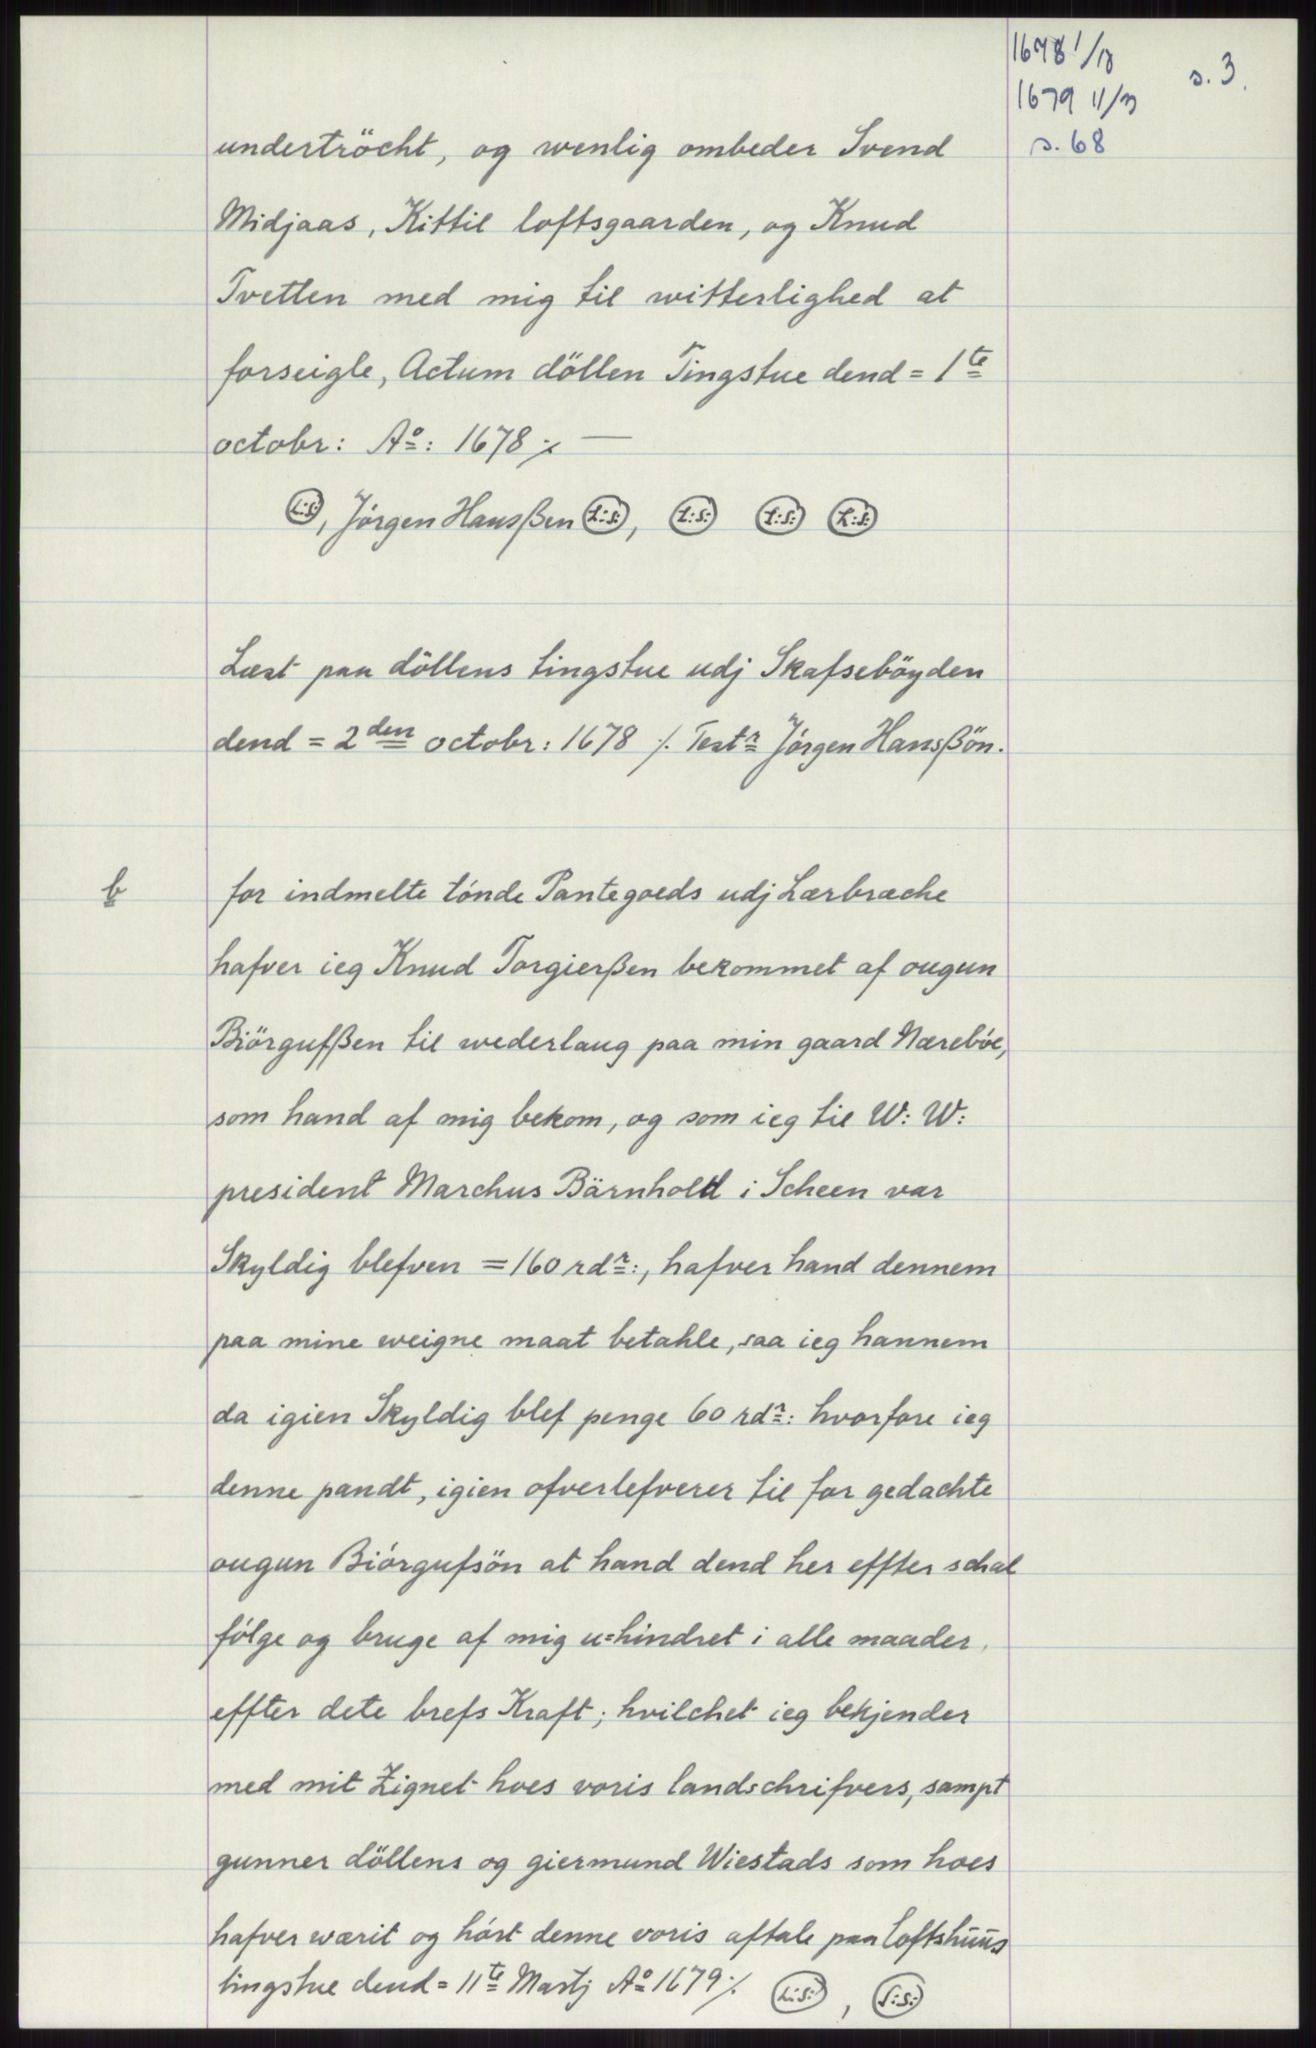 1678 1/10
1679 11/3
s. 68
s. 3.
undertröcht, og wenlig ombeder Svend
Midjaas, Kittil loftsgaarden, og Knud
Tvetten med mig til witterlighed at
forseigle, Actum döllen Tingstue dend = 1te
octobr: Ao: 1678 ./. —
L:S:, Jörgen Hansßen L:S:, L:S: L:S: L:S:
Læst paa döllens tingstue udj Skafseböyden
dend = 2den octobr: 1678 ./. Testr Jörgen Hansßön.
b
for indmelte tónde Pantegoeds udj Lærbræche
hafver ieg Knud Torgierßen bekommet af ougun
Biörgufßen til wederlaug paa min gaard Nærebóe,
som hand af mig bekom, og som ieg til W: W:
president Marchus Bärnholdt i Scheen var
Skyldig blefven = 160 rdr:, hafver hand dennem
paa mine weigne maat betahle, saa ieg hannem
da igien Skyldig blef penge 60 rdr: hvorfore ieg
denne pandt, igien ofverlefverer til for gedachte
ougun Biórgufsön at hand dend her effter schal
fólge og bruge af mig u=hindret i alle maader,
effter dete brefs Kraft; hvilchet ieg bekjender
med mit Zignet hoes voris landschrifvers, sampt
gunner döllens og giermund Wiestads som hoes
hafver wærit og hórt denne voris aftale paa Loftshuus
tingstue dend = 11te Martj Ao 1679 ./. L:S:, L:S: